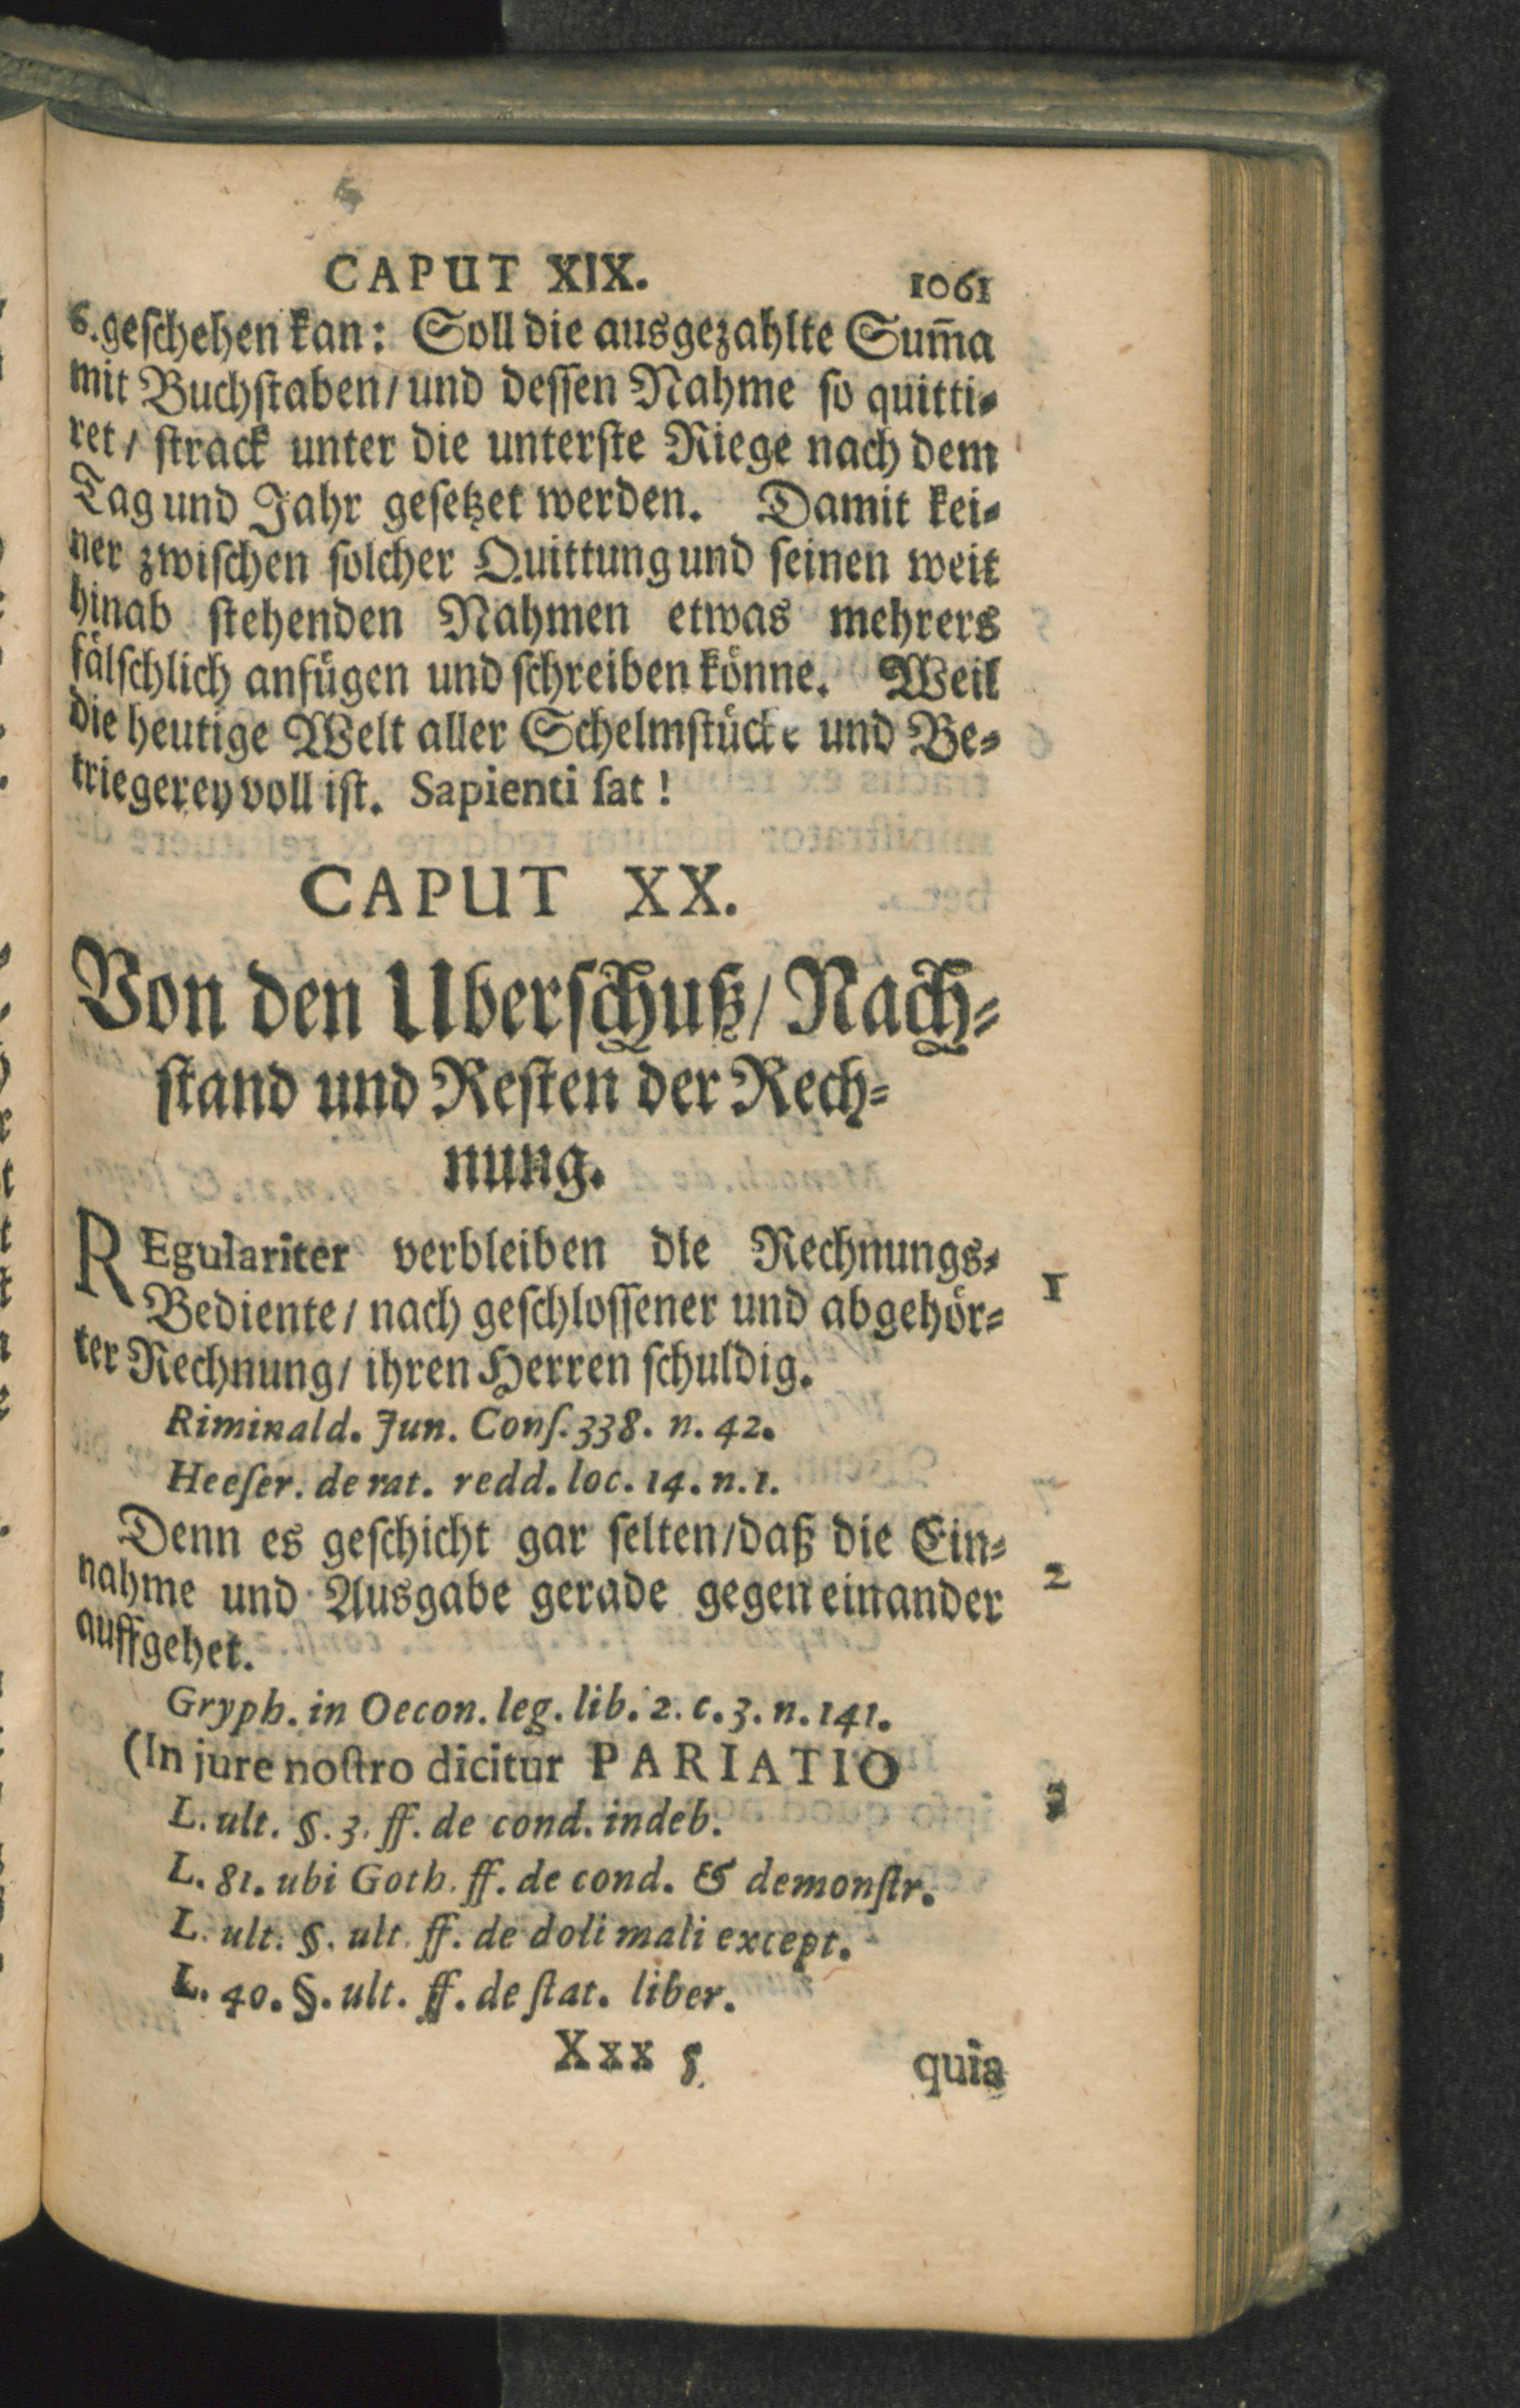 CAPUT XIX. 1061
6. geschehen kan: Soll die ausgezahlte Sum̃a
mit Buchstaben/ und dessen Nahme so quitti-
ret/ strack unter die unterste Riege nach dem
Tag und Jahr gesetzet werden. Damit kei-
ner zwischen solcher Quittung und seinen weit
hinab stehenden Nahmen etwas mehrers
fälschlich anfügen und schreiben könne. Weil
die heutige Welt aller Schelmstücke und Be-
triegerey voll ist. Sapienti sat!
CAPUT XX.
Von den Uberschuß/ Nach-
stand und Resten der Rech-
nung.
REgulariter verbleiben die Rechnungs- 1
Bediente/ nach geschlossener und abgehör-
ter Rechnung/ ihren Herren schuldig.
Riminald. Jun. Cons. 338. n. 42.
Heeser. de rat. redd. loc. 14. n. 1.
Denn es geschicht gar selten/ daß die Ein-
nahme und Ausgabe gerade gegen einander 2
auffgehet.
Gryph. in Oecon. leg. lib. 2. c. 3. n. 141.
(In jure nostro dicitur PARIATIO
L. ult. §. 3. ff. de cond. indeb. 3
L. 81. ubi Goth. ff. de cond. & demonstr.
L. ult. §. ult. ff. de doli mali except.
L. 40. §. ult. ff. de stat. liber.
Xxx quia